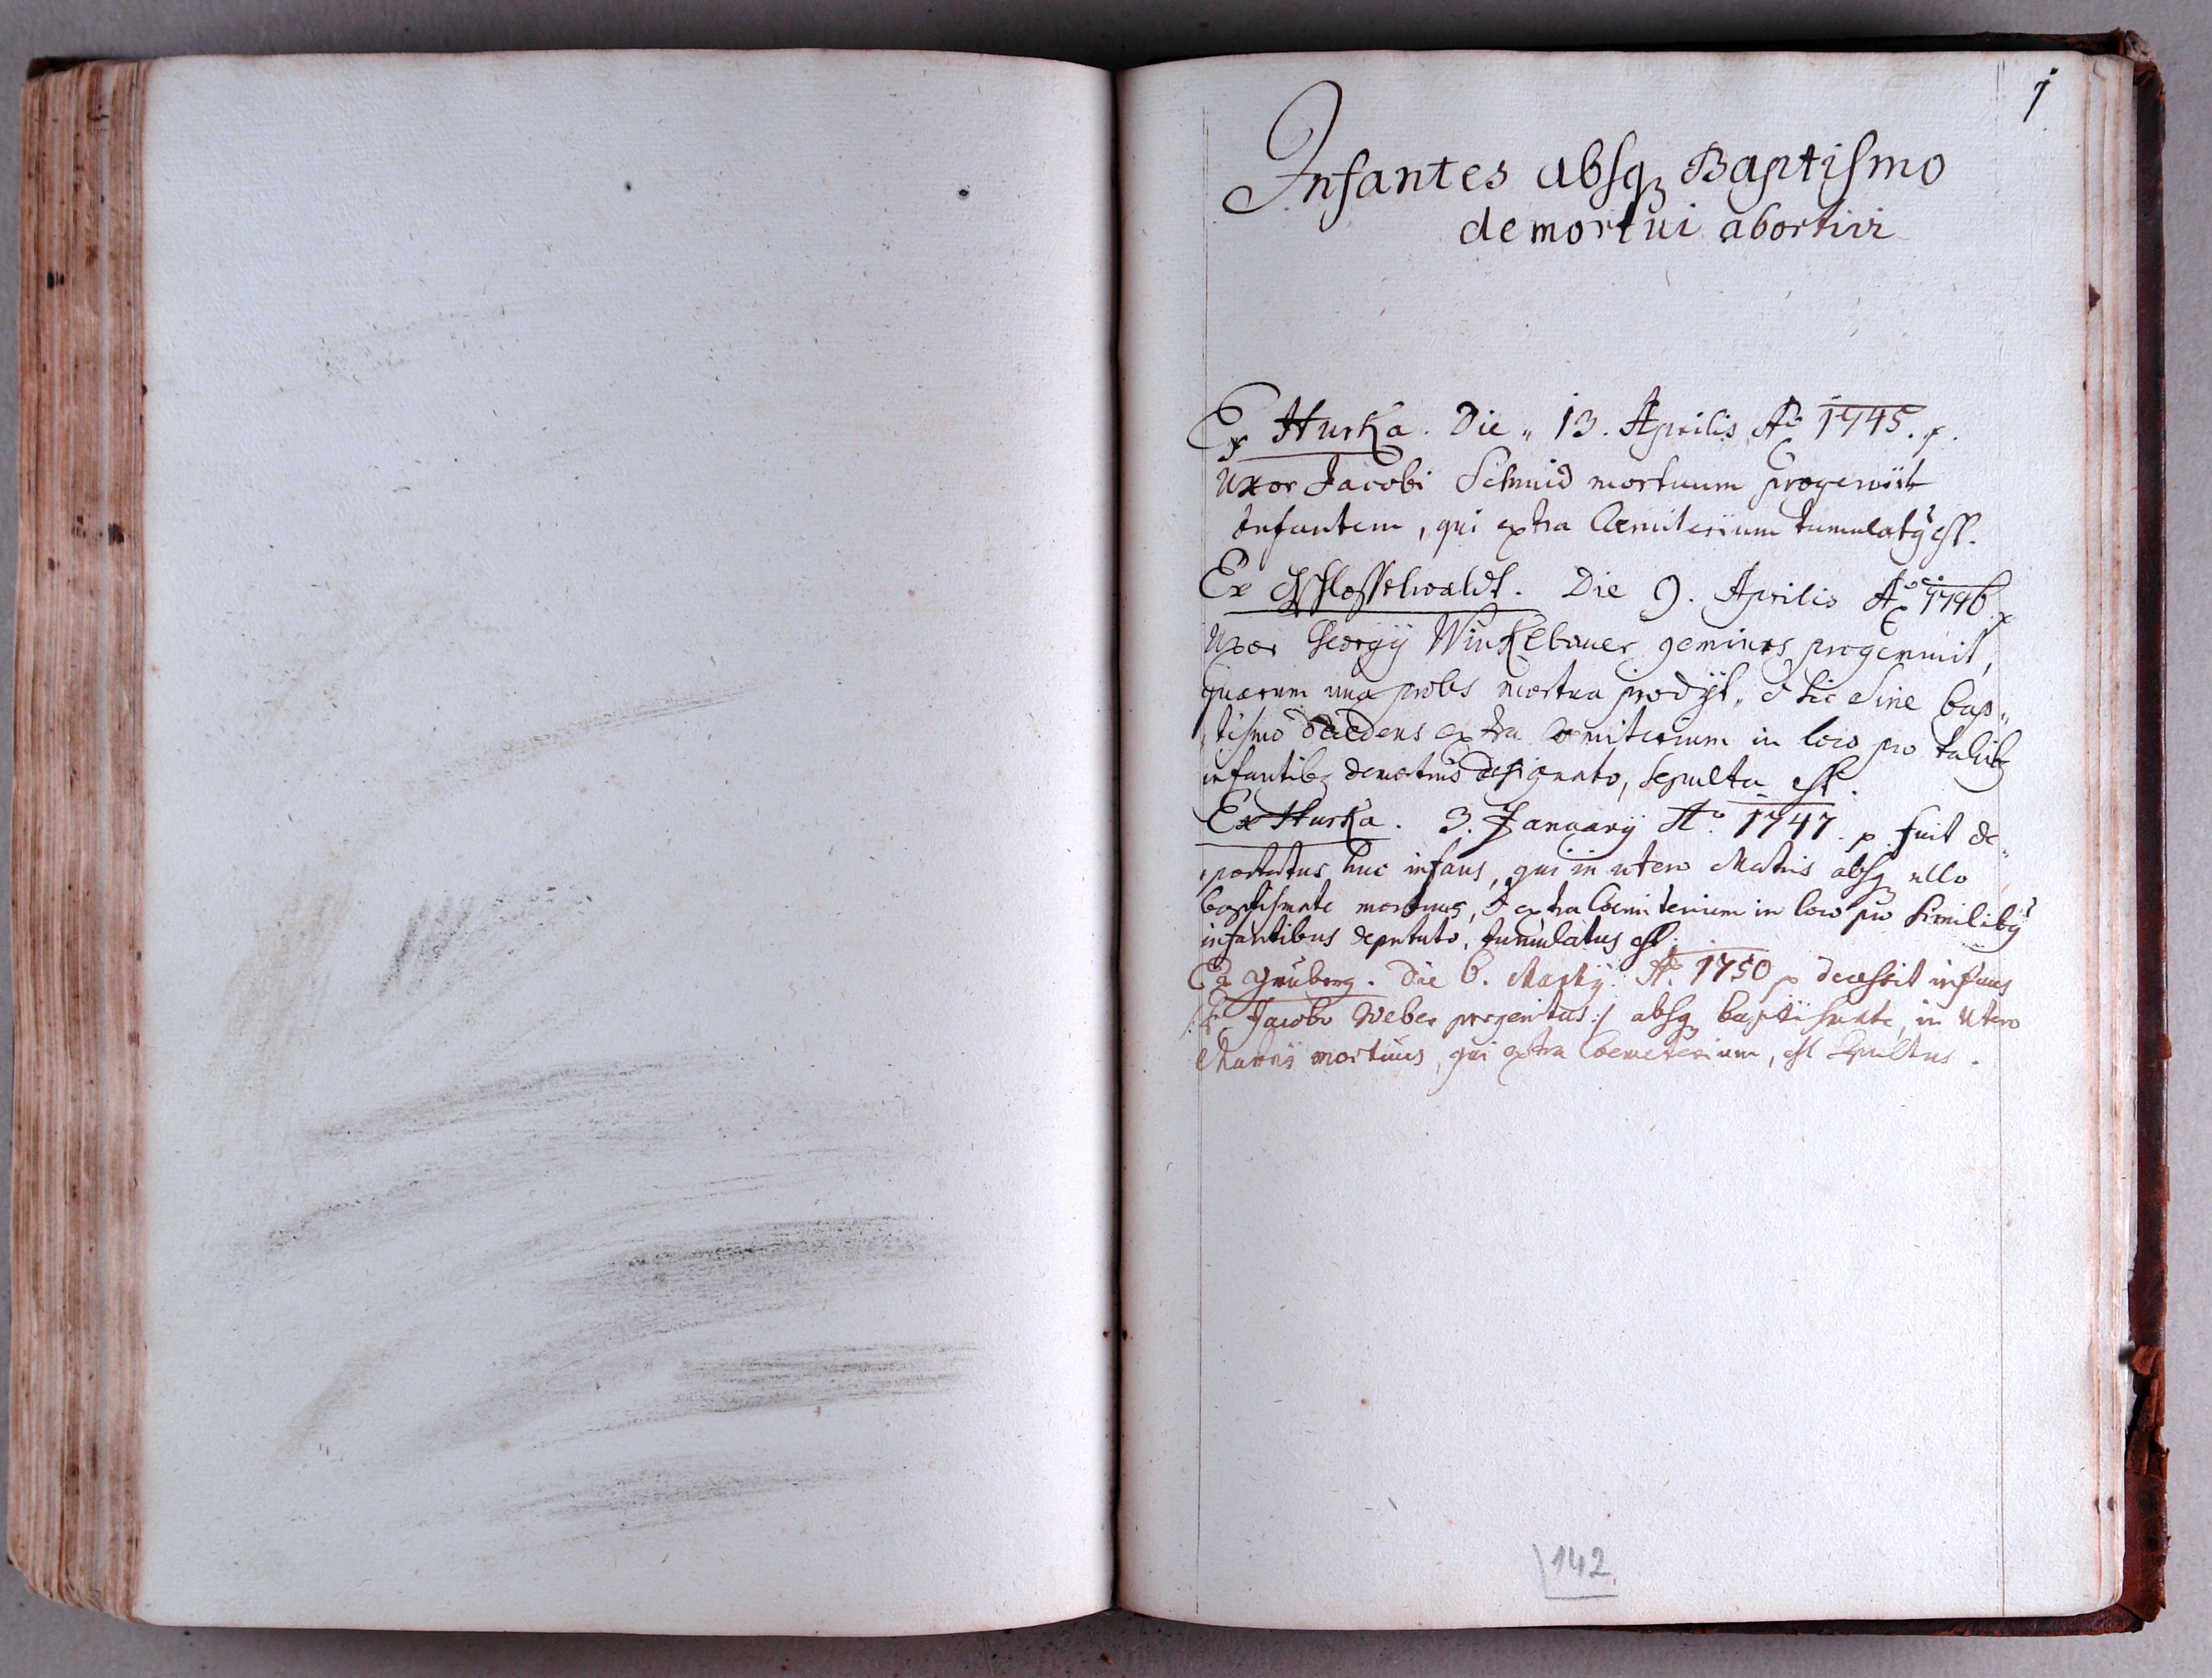 1
Infantes absq₃ Baptismo
demortui abortivi
Ex Hurka. Die 13. Aprilis Aõ 1745.
Uxor Jacobi Schmid mortuum progenuit
Infantem, qui extra Cæmiterium tumulatg est.
Ex Schlosselwaldt. Die 9. Aprilis Aõ 1746.
Uxor Georgÿ Winkelbauer geminos progenuit,
quarum una proles mortua prodÿt, & sine bap„
tismo decedens extra Cæmiterium in loco pro talibg
infantibg demortuis designato, sepulta est.
Ex Hurka. 3. Januarÿ Aõ. 1747. p. fuit de„
portatus huc infans, qui in utero Matris absq₃ ullo
baptismate mortuus, & extra Cæmiterium in loco pro similibg
infantibus deputato, tumulatus est.
Ex Gruberg. Die 6. Martÿ Aõ. 1750 p decessit infans
Jacobo Weber progenitus :/ absq₃ baptismate, in utero
Matris mortuus, qui extra Cæmeterium, est sepultus.
142